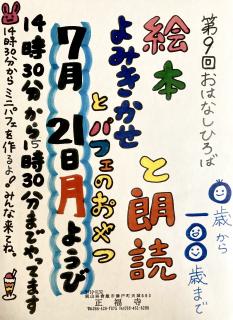 第9回おはなしひろば
0歳から
100歳まで
絵本と朗読
よみきかせ
とパフェのおやつ
7月21日月ようび
14時30分から15時30分までやってます
14時30分からミニパフェを作るよ!みんな来てね。
正福寺